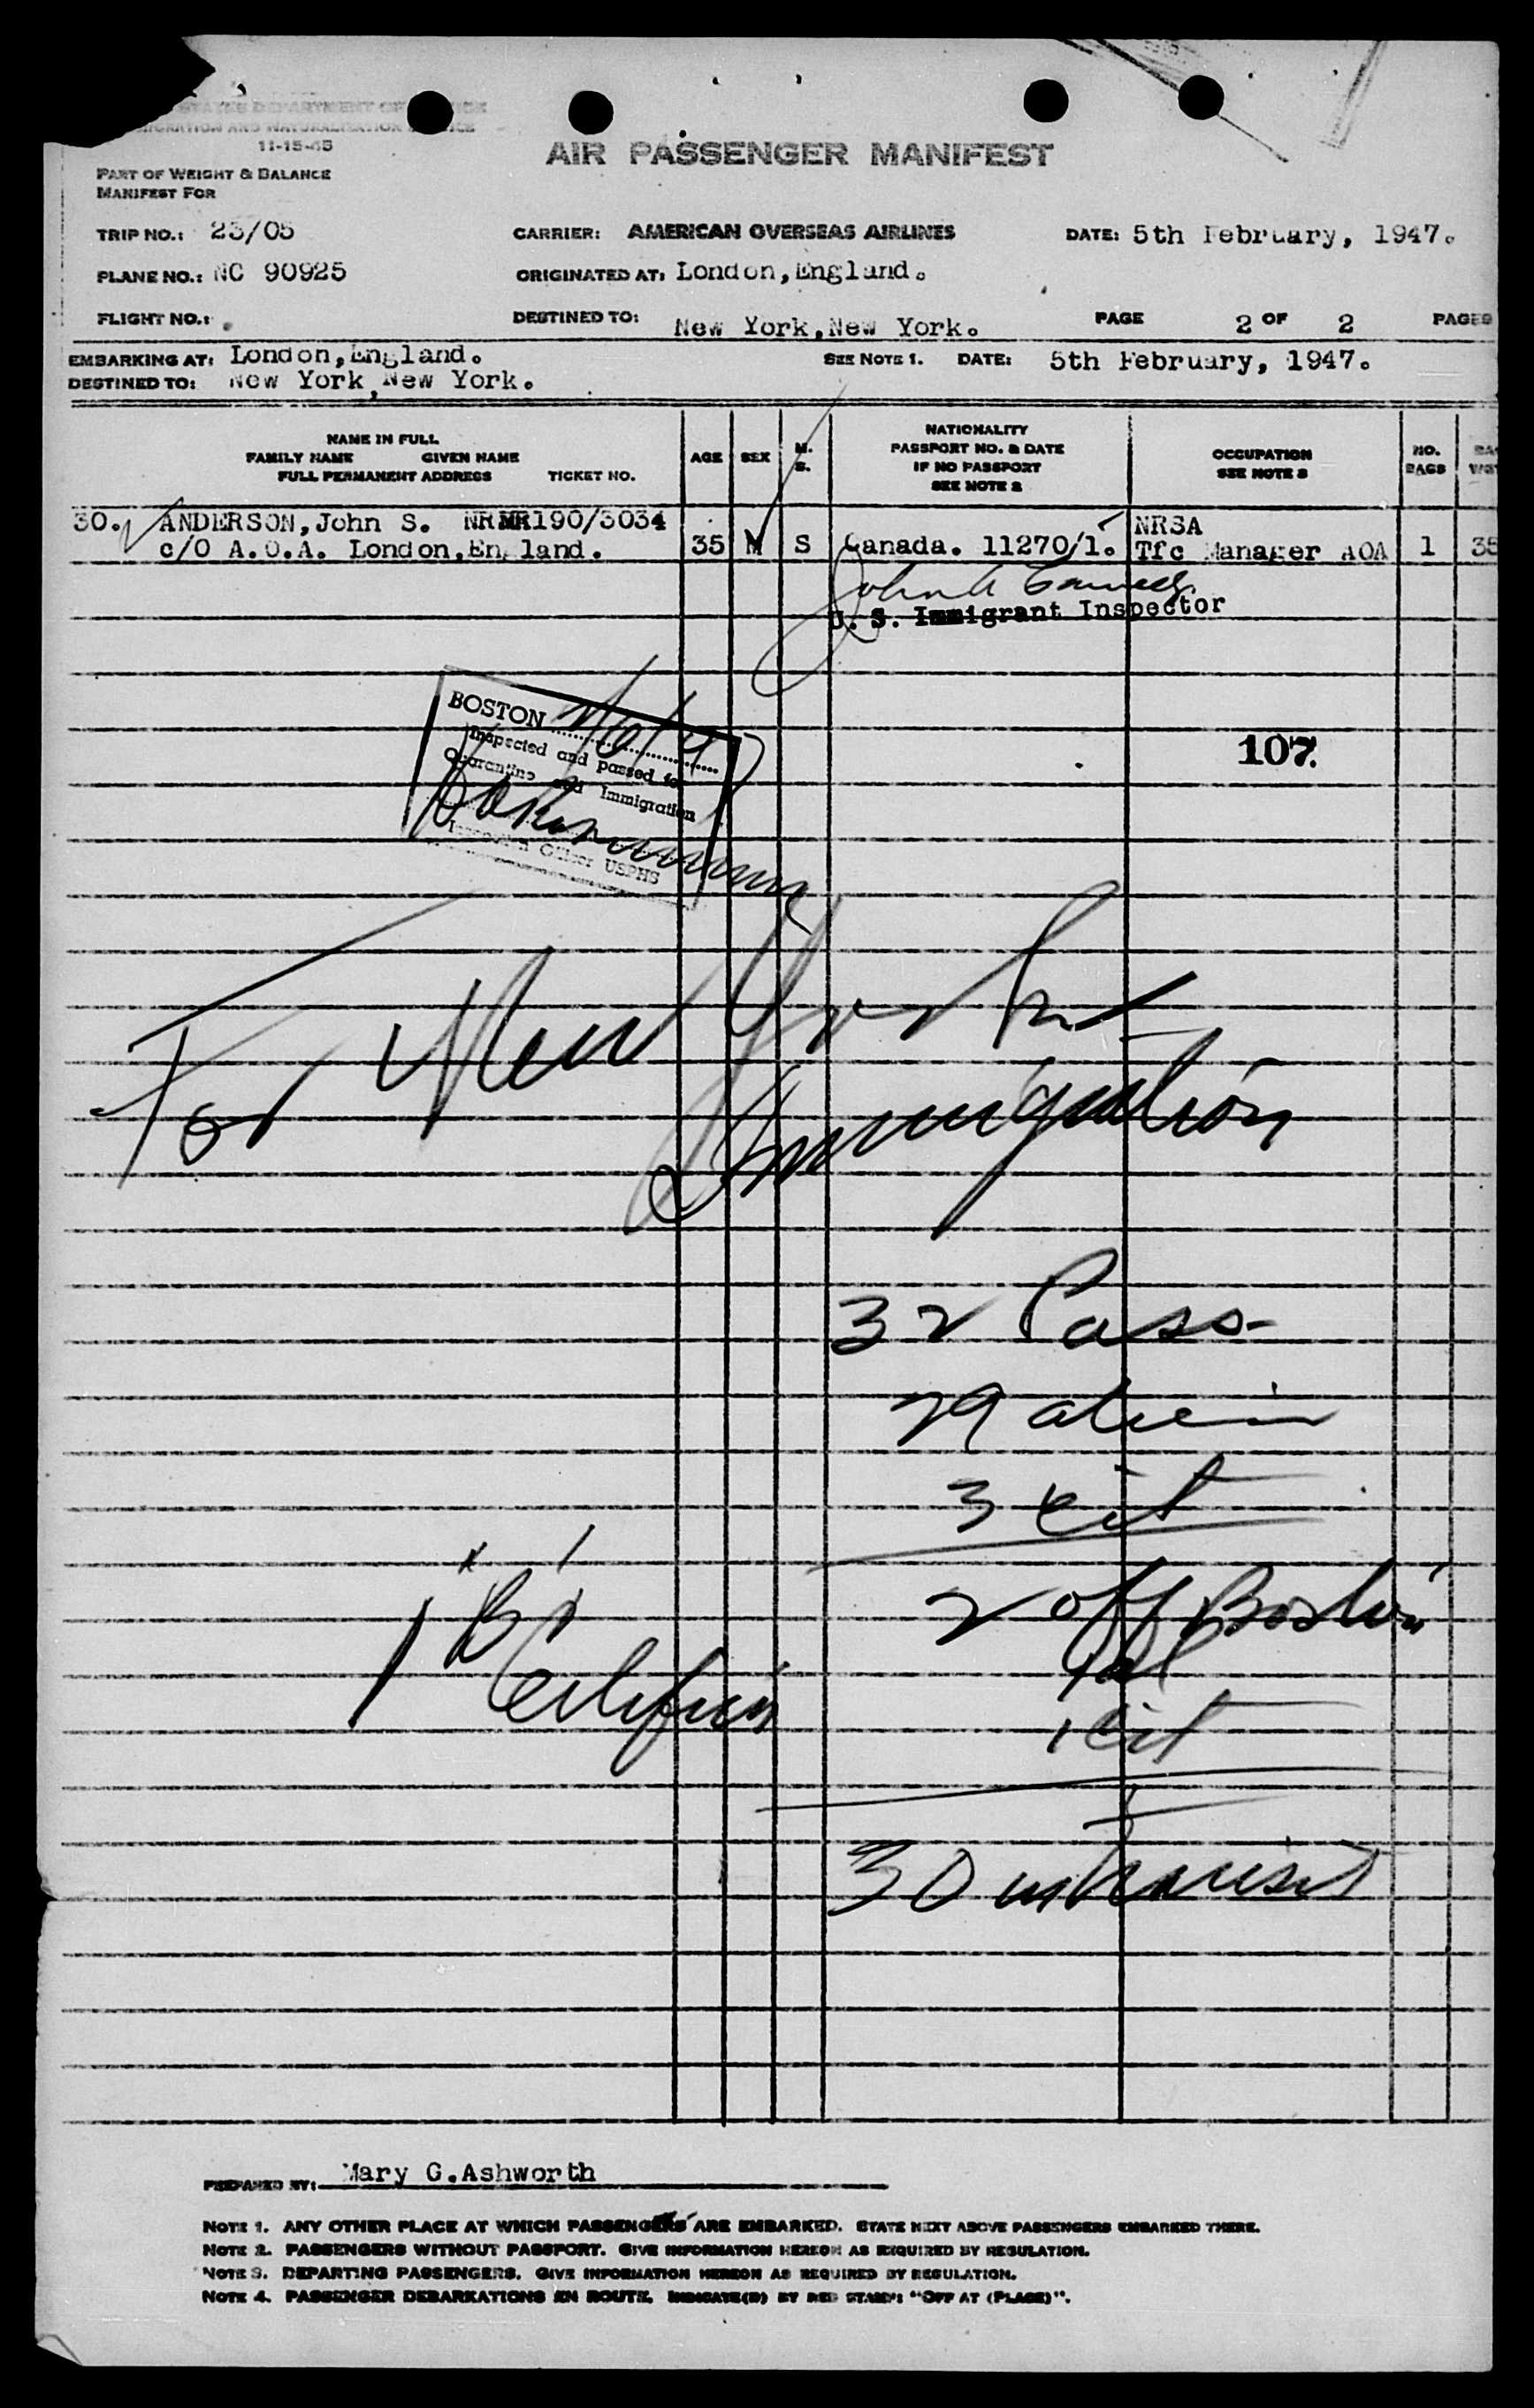 STATES DEPARTMENT OF JUSTICE
IMMIGRATION AND NATURALIZATION SERVICE
11-15-45
AIR PASSENGER MANIFEST
PART OF WEIGHT & BALANCE
MANIFEST FOR
TRIP NO.: 23/05 CARRIER: AMERICAN OVERSEAS AIRLINES DATE: 5th February, 1947.
PLANE NO.: NC 90925 ORIGINATED AT: London,England.
FLIGHT NO.: DESTINED TO: New York,New York. PAGE 2 OF 2 PAGES
EMBARKING AT: London,England. SEE NOTE 1. DATE: 5th February, 1947.
DESTINED TO: New York,New York.
NAME IN FULL
FAMILY NAME GIVEN NAME
FULL PERMANENT ADDRESS TICKET NO.
AGE SEX M. S.
NATIONALITY
PASSPORT NO. & DATE
IF NO PASSPORT
SEE NOTE 2
OCCUPATION
SEE NOTE 3
NO.
BAGS
30. ANDERSON,John S. NRMR190/3034 NRSA
c/O A.O.A. London,England. 35 M S Canada. 11270/1. Tfc Manager AOA 1 35
U. S. Immigrant Inspector
BOSTON
Inspected and passed for
Quarantine and Immigration
Officer USPHS
107.
For New York
Immigration
32 Pass
29 alien
3 cit
2 off Boston
1 al
1 cit
30 in transit
PREPARED BY: Mary G.Ashworth
NOTE 1. ANY OTHER PLACE AT WHICH PASSENGERS ARE EMBARKED. STATE NEXT ABOVE PASSENGERS EMBARKED THERE.
NOTE 2. PASSENGERS WITHOUT PASSPORT. GIVE INFORMATION HEREON AS REQUIRED BY REGULATION.
NOTE 3. DEPARTING PASSENGERS. GIVE INFORMATION HEREON AS REQUIRED BY REGULATION.
NOTE 4. PASSENGER DEBARKATIONS EN ROUTE. INDICATE(D) BY RED STAMP: "OFF AT (PLACE)".